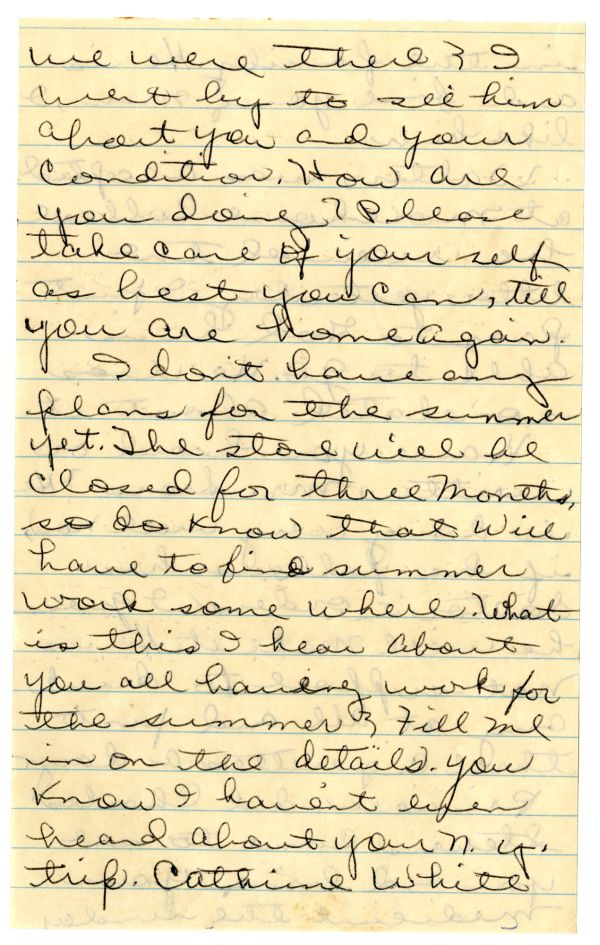 we were there? I
went by to see him
about you and your
condition. How are
you doing? Please
take care of your self
as best you can, till
you are home again.
I don't have any
plans for the summer
yet. The store will be
closed for three months,
so do know that will
have to find summer
work some where. What
is this I hear about
you all having work for
the summer? Fill me
in on the details. you
know I haven't even
heard about your N. y.
trip. Cathrine White